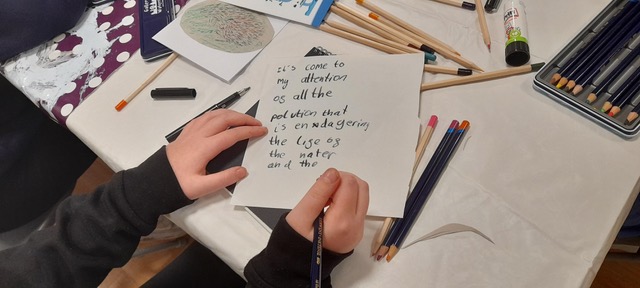 it's come to
my attention
of all the
polution that
is endagering
the life of
the water
and the